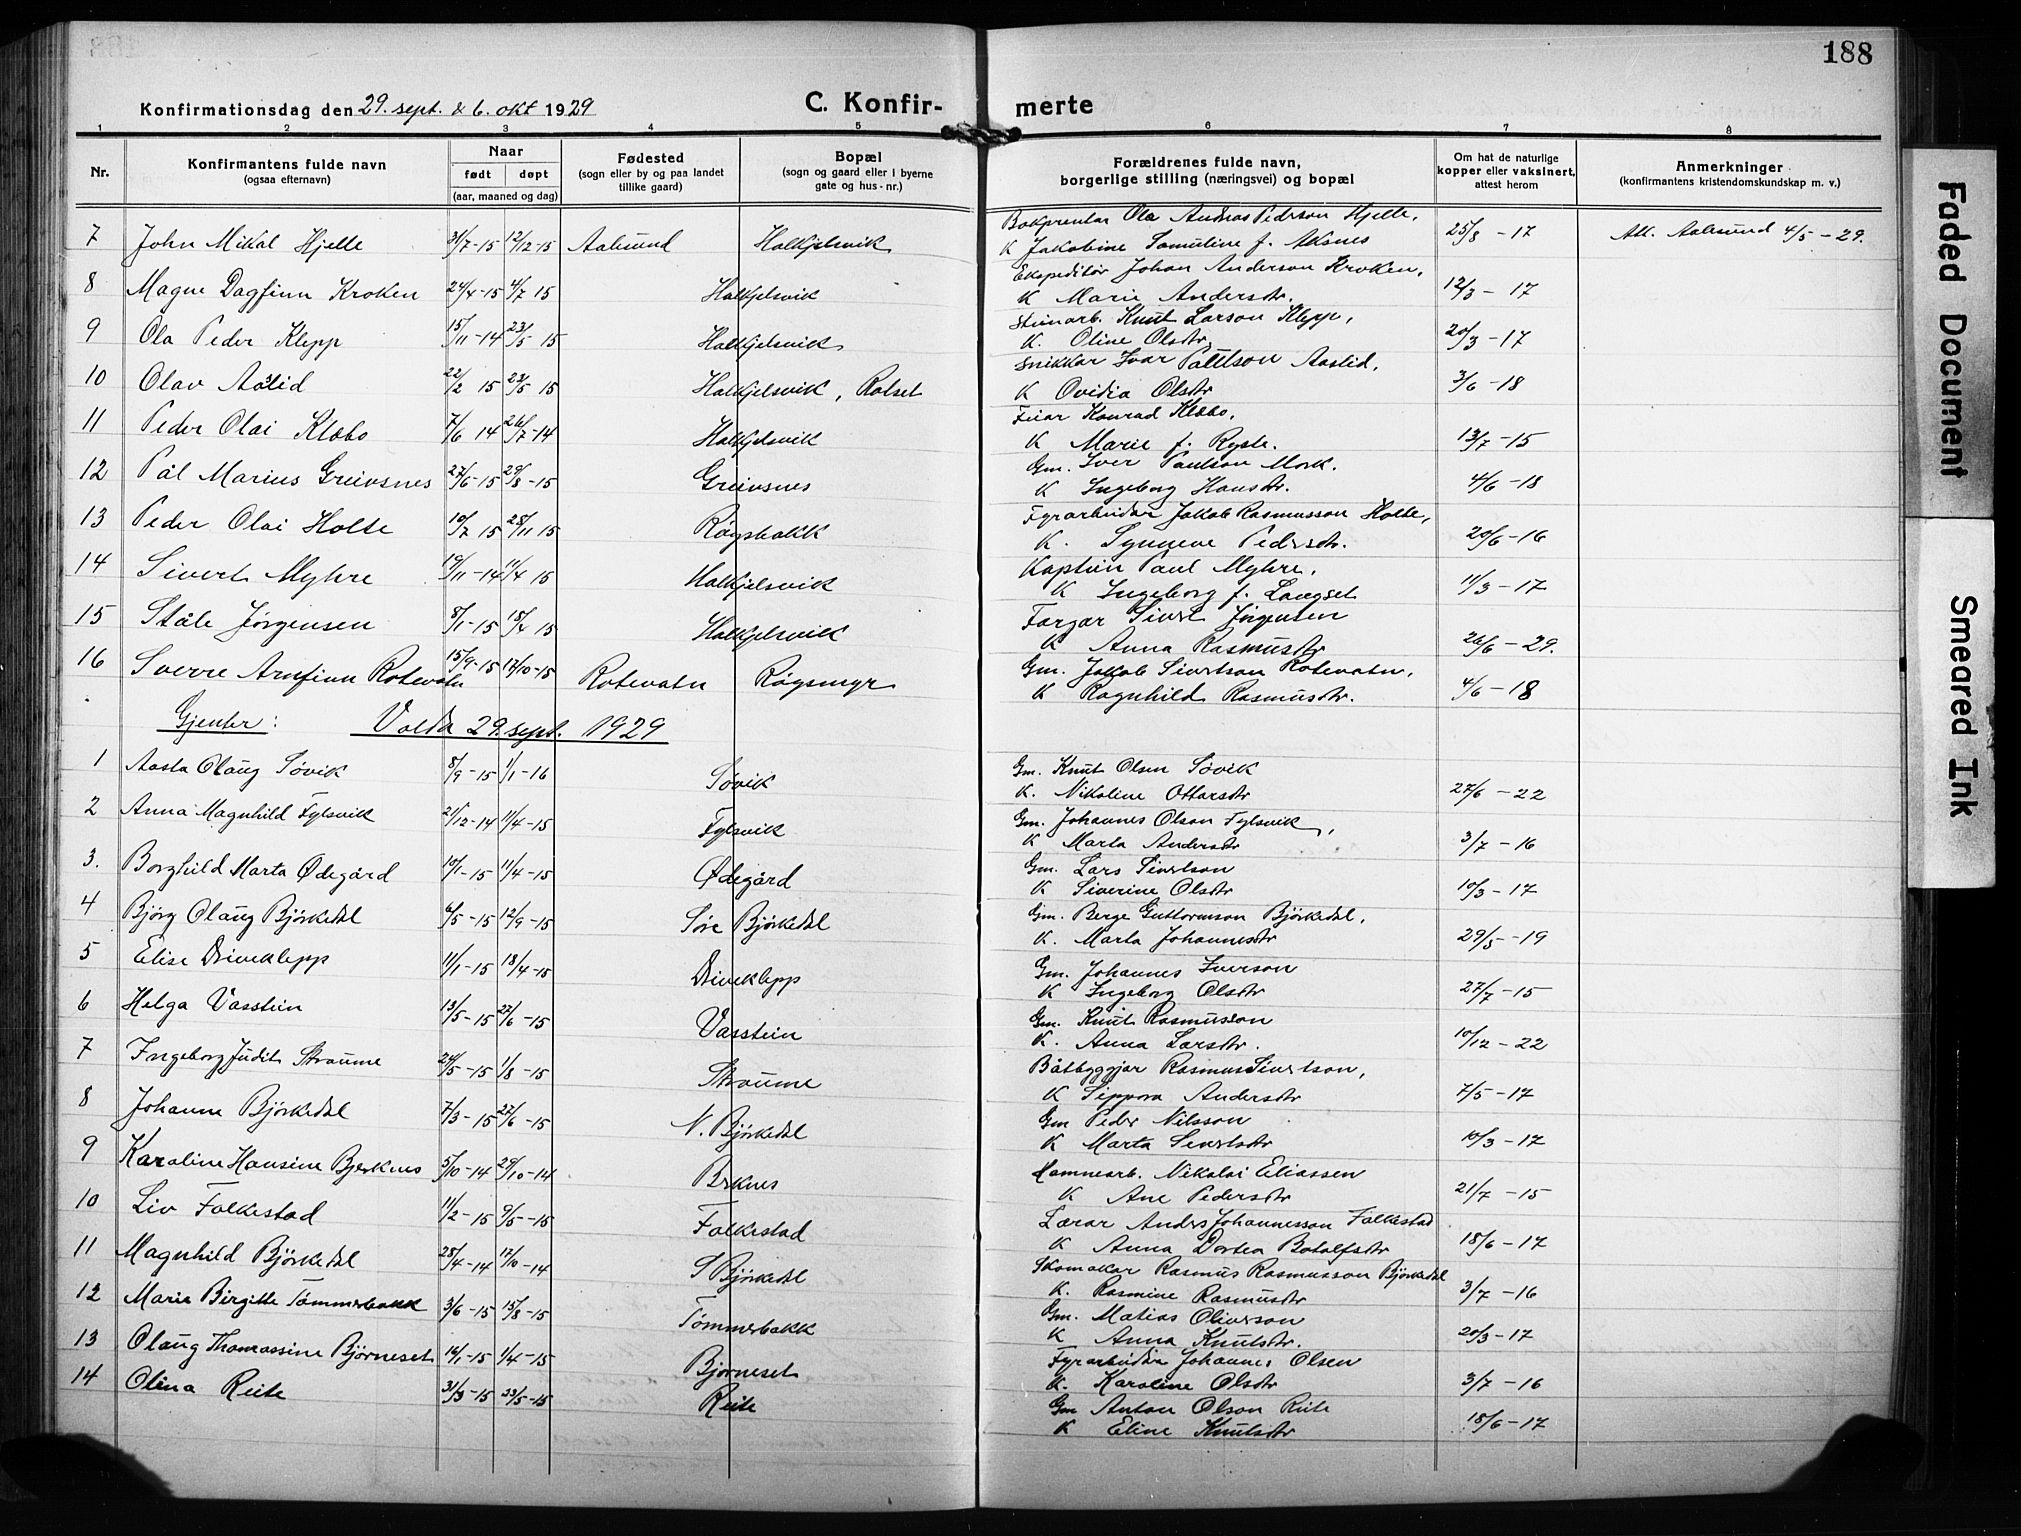 188
Konfirmationsdag den 29. sept. & 6. okt 1929
C. Konfir-
merte
1 2 3 4 5 6 7 8
Nr.
Konfirmantens fulde navn
(ogsaa efternavn)
Naar
født døpt
(aar, maaned og dag)
Fødested
(sogn eller by og paa landet
tillike gaard)
Bopæl
(sogn og gaard eller I byerne
gate og hus-nr.)
Forældrenes fulde navn,
borgerlige stilling (næringsvei) og bopæl
Om hat de naturlige
kopper eller vaksinert,
attest herom
Anmerkninger
(konfirmantens kristendomskundskap m. v.)
7 John Mikal Hjelle 31/7-15 12/12-15 Aalesund Halkjelsvik
Bokprentar Ola Andreas Pederson Hjelle,
K Jakobine Samuline f. Aksnes 25/8-17 Att. Aalesund 4/5-29.
8 Magne Dagfinn Kroken 24/4-15 4/7 15 Halkjelsvik
Ekspeditør Johan Anderson Kroken,
K Marie Andersdtr. 12/3-17
9 Ola Peder Klepp 15/11-14 23/5 15 Halkjelsvik
Steinarb. Knut Larson Klepp,
K. Oline Olsdtr 20/3-17
10 Olav Aâlid 22/2 15 23/5 15 Halkjelsvik, Rotset
Snikkar Ivar Aaslid,
K Ovidia Olsdtr 3/6-18
11 Peder Olai Klæbo 7/6 14 26/7-14 Halkjelsvik
Feiar Konrad Klæbo,
K Marie f. Ryste. 13/7-15
12 Pål Marius Greivsnes 27/6-15 29/8-15 Greivsnes
Gm. Iver Paulson Mork.
K Ingeborg Hansdtr. 4/6-18
13 Peder Olai Holte 10/7 15 28/11 15 Røysbakk
Fyrarbeidar Jakob Rasmusson Holte,
K. Synneve Pedersdtr. 20/6-16
14 Sivert Myhre 19/11-14 11/4 15 Halkjelsvik
Kaptein Paul Myhre,
K Ingeborg f. Langset 11/3-17
15 Ståle Jørgensen 8/1-15 18/4 15 Halkjelsvik
Fargar Sivert Jørgensen
K Anna Rasmusdtr 26/6-29.
16 Sverre Arnfinn Rotevatn 15/9-15 17/10-15 Rotevatn Røysmyr
Gm. Jakob Sivertson Rotevatn,
K Ragnhild Rasmusdtr. 4/6-18
Gjenter: Volda 29. sept. 1929
1 Aasta Olaug Søvik 8/9-15 1/1-16 Søvik
Gm. Knut Olsen Søvik
K. Nikoline Ottarsdtr 27/6-22
2 Anna Magnhild Fylsvik 21/12-14 11/4-15 Fylsvik
Gm. Johannes Olson Fylsvik,
K Marta Andersdtr 3/7-16
3. Borghild Marta Ødegård 10/1-15 11/4-15 Ødegård
Gm. Lars Sivertson
K Siverine Olsdtr 10/3-17
4 Bjørg Olaug Bjørkedal 6/5-15 12/9-15 Søre Bjørkedal
Gm. Berge Guttormson Bjørkedal,
K. Marta Johannesdtr 29/5-19
5 Elise Driveklepp 11/1-15 18/4-15 Driveklepp
Gm. Johannes Iverson
K Ingeborg Olsdtr 27/7-15
6 Helga Vasstein 13/5-15 27/6-15 Vasstein
Gm. Knut Rasmusson
K. Anna Larsdtr. 10/12-22
7 Ingeborg Judit Straume 24/5-15 1/8-15 Straume
Båtbyggjar Rasmus Sivertson,
K Sippora Andersdtr 7/5-17
8 Johanne Bjørkedal 7/3-15 27/6-15 N. Bjørkedal
Gm Peder Nilsson
K Marta Sivertsdtr 10/3-17
9 Karoline Hansine Bjerknes 5/10-14 29/10-14 Berknes
Hamnearb. Nikolai Eliassen
K Ane Pedersdtr 21/7-15
10 Liv Folkestad 11/2-15 9/5-15 Folkestad
Lærar Anders Johannesson Folkestad
K Anna Dortea Botolfsdtr 18/6-17
11 Magnhild Bjørkedal 28/4-14 17/10-14 S Bjørkedal
Skomakar Rasmus Rasmusson Bjørkedal
K. Rasmine Rasmusdtr 3/7-16
12 Marie Birgitte Tømmerbakk 3/6-15 15/8-15 Tømmerbakk
Gm. Matias Oliverson
K Anna Knutsdtr. 20/3-17
13 Olaug Thomassine Bjørneset 16/1-15 1/4-15 Bjørneset
Fyrarbeidar Johannes Olsen
K. Karoline Olsdtr 3/7-16
14 Olina Reite 31/3-15 23/5-15 Reite
Gm Anton Olson Reite
K Eline Knutsdtr 18/6-17
Faded Document
Smeared Ink